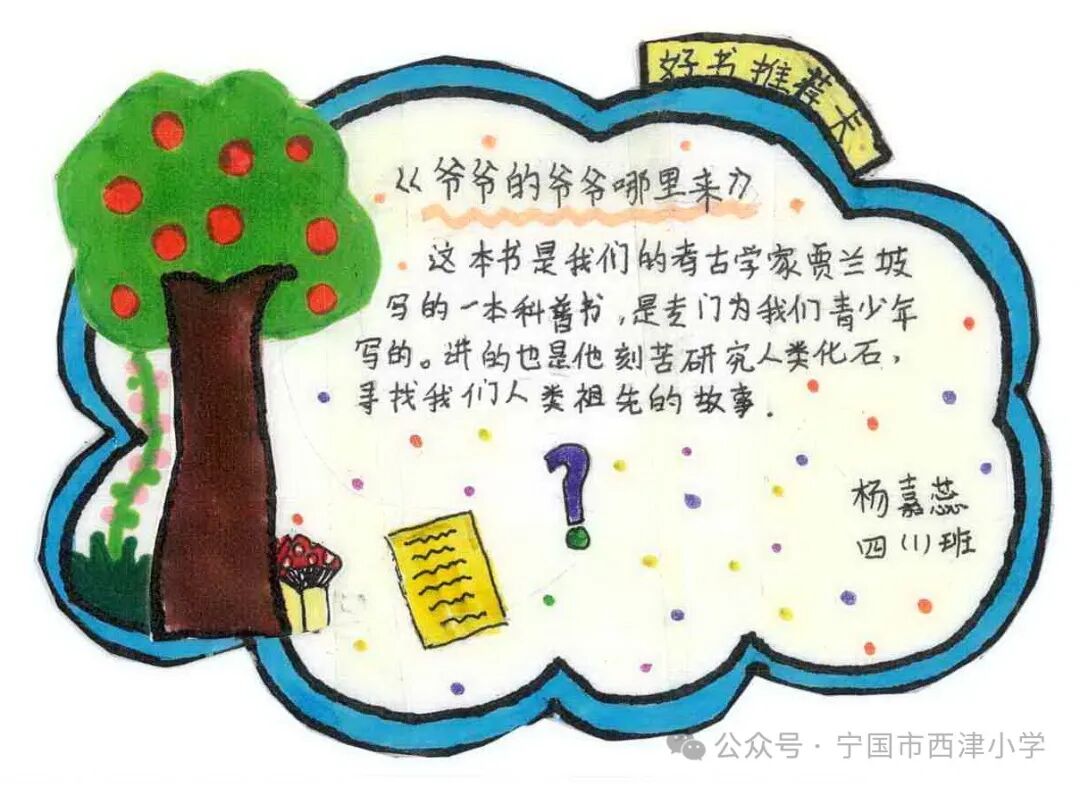 好书推荐卡
《爷爷的爷爷哪里来》
这本书是我们的考古学家贾兰坡
写的一本科普书,是专门为我们青少年
写的。讲的也是他刻苦研究人类化石,
寻找我们人类祖先的故事.
?
杨嘉蕊
四(1)班
公众号·宁国市西津小学